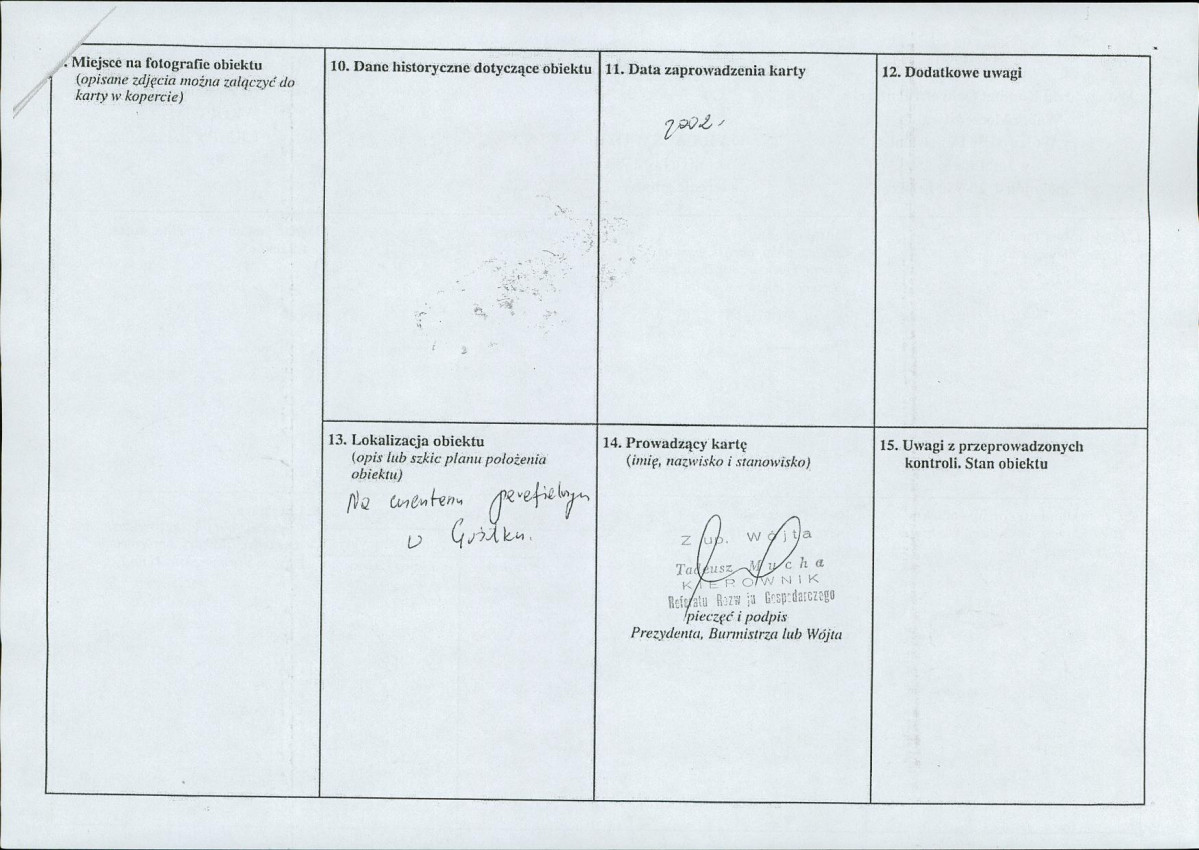 . Miejsce na fotografie obiektu
(opisane zdjęcia można załączyć do
karty w kopercie)
10. Dane historyczne dotyczące obiektu
11. Data zaprowadzenia karty
2002.
12. Dodatkowe uwagi
13. Lokalizacja obiektu
(opis lub szkic planu położenia
obiektu)
Na cmentarzu parafialnym
w
14. Prowadzący kartę
(imię, nazwisko i stanowisko)
Z up. Wójta
Tadeusz Mucha
KIEROWNIK
Referatu Rozw ju Gospodarczego
pieczęć i podpis
Prezydenta, Burmistrza lub Wójta
15. Uwagi z przeprowadzonych
kontroli. Stan obiektu